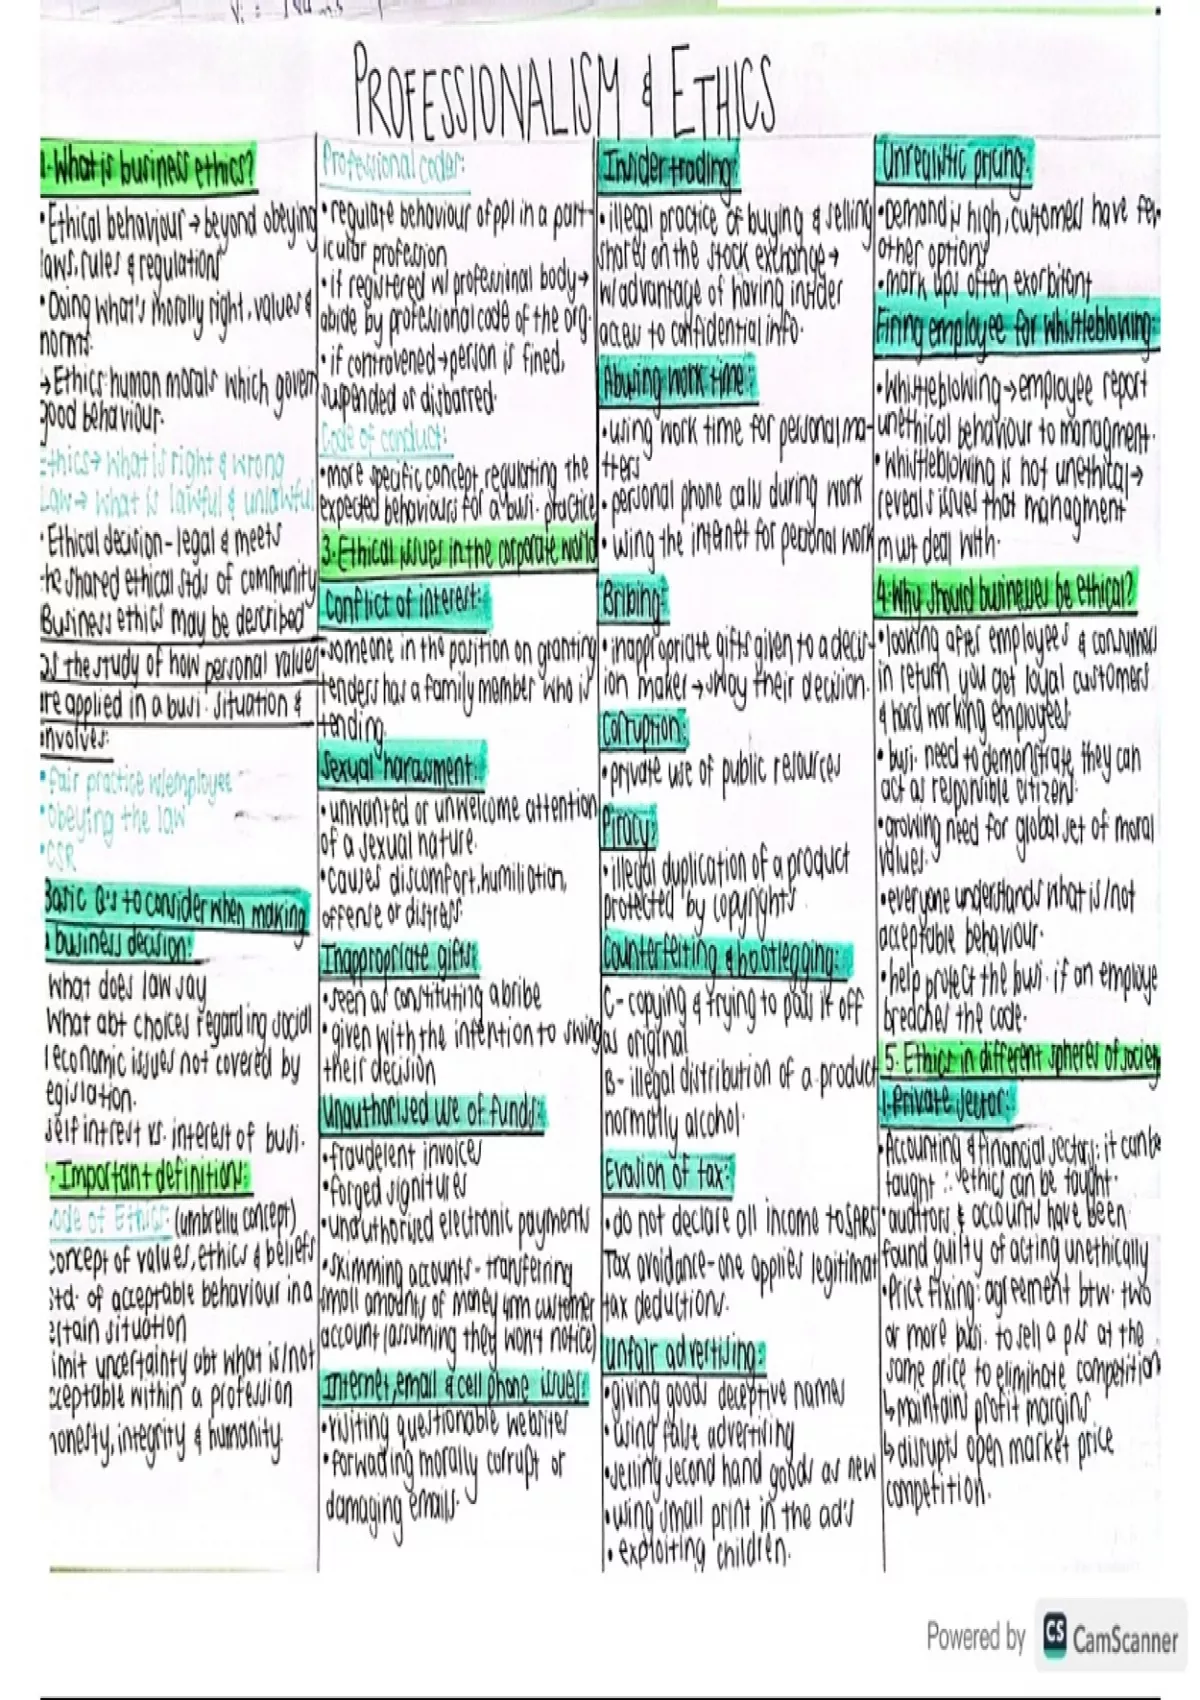 PROFESSIONALISM & ETHICS
1. What is business ethics?
• Ethical behaviour → beyond obeying
laws, rules & regulations
• Doing what's morally right, values &
norms.
→ Ethics: human morals which govern
good behaviour.
Ethics → what is right & wrong
Law → what is lawful & unlawful
• Ethical decision - legal & meets
the shared ethical stds of community
Business ethics may be described
as the study of how personal values
are applied in a busi. situation &
involves:
• Fair practice w/employee
• Obeying the law
• CSR
Basic Q's to consider when making
a business decision:
What does law say
What abt choices regarding social
& economic issues not covered by
legislation.
self intrest vs. interest of busi.
Important definitions:
Code of Ethics: (umbrella concept)
concept of values, ethics & beliefs
std. of acceptable behaviour in a
certain situation
limit uncertainty abt what is/not
acceptable within a profession
honesty, integrity & humanity.
Professional codes:
• regulate behaviour of ppl in a part-
icular profession
• if registered w/ professional body →
abide by professional code of the org.
• if controvened → person is fined,
suspended or disbarred.
Code of conduct:
• more specific concept regulating the
expected behaviours for a busi. practice
3. Ethical issues in the corporate world
Conflict of interest:
• someone in the position on granting
tenders has a family member who is
tending.
Sexual harasment:
• unwanted or unwelcome attention
of a sexual nature.
• causes discomfort, humiliation,
offense or distress.
Inappropriate gifts:
• seen as constituting a bribe
• given with the intention to swing
their decision
Unauthorised use of funds:
• fraudelent invoices
• forged signitures
• unauthorised electronic payments
• skimming accounts - transferring
small amounts of money from customer
account (assuming they won't notice)
Internet, email & cell phone issues:
• visiting questionable websites
• forwading morally corrupt or
damaging emails.
Insider trading:
• illegal practice of buying & selling
shares on the stock exchange →
w/ advantage of having insider
access to confidential info.
Abusing work time:
• using work time for personal ma-
tters
• personal phone calls during work
• using the internet for personal work
Bribing:
• inappropriate gifts given to a decis-
ion maker → sway their decision.
Corruption:
• private use of public resources
Piracy:
• illegal duplication of a product
protected by copyrights
Counterfeiting & bootlegging:
C - copying & trying to pass it off
as original
B - illegal distribution of a product
normally alcohol.
Evasion of tax:
• do not declare all income to SARS
Tax avoidance - one applies legitimat
tax deductions.
Unfair advertising:
• giving goods deceptive names
• using false advertising
• selling second hand goods as new
• using small print in the ad's
• exploiting children.
Unrealistic pricing:
• Demand is high, customers have few
other options
• mark ups often exorbitant
Firing employee for whistleblowing:
• Whistleblowing → employee report
unethical behaviour to managment.
• Whistleblowing is not unethical →
reveals issues that managment
must deal with.
4. Why should businesses be ethical?
• looking after employees & consumers
in return you get loyal customers
& hard working employees.
• busi. need to demonstrate they can
act as responsible citizens.
• growing need for global set of moral
values.
• everyone understands what is/not
acceptable behaviour.
• help protect the busi. if an employe
breaches the code.
5. Ethics in different spheres of society
1. Private sector:
• Accounting & financial sectors: it can be
taught ∴ ethics can be taught.
• auditors & accounts have been
found guilty of acting unethically
• Price fixing: agreement btw. two
or more busi. to sell a p/s at the
same price to eliminate competition
↳ maintains profit margins
↳ disrupts open market price
competition.
Powered by CS CamScanner